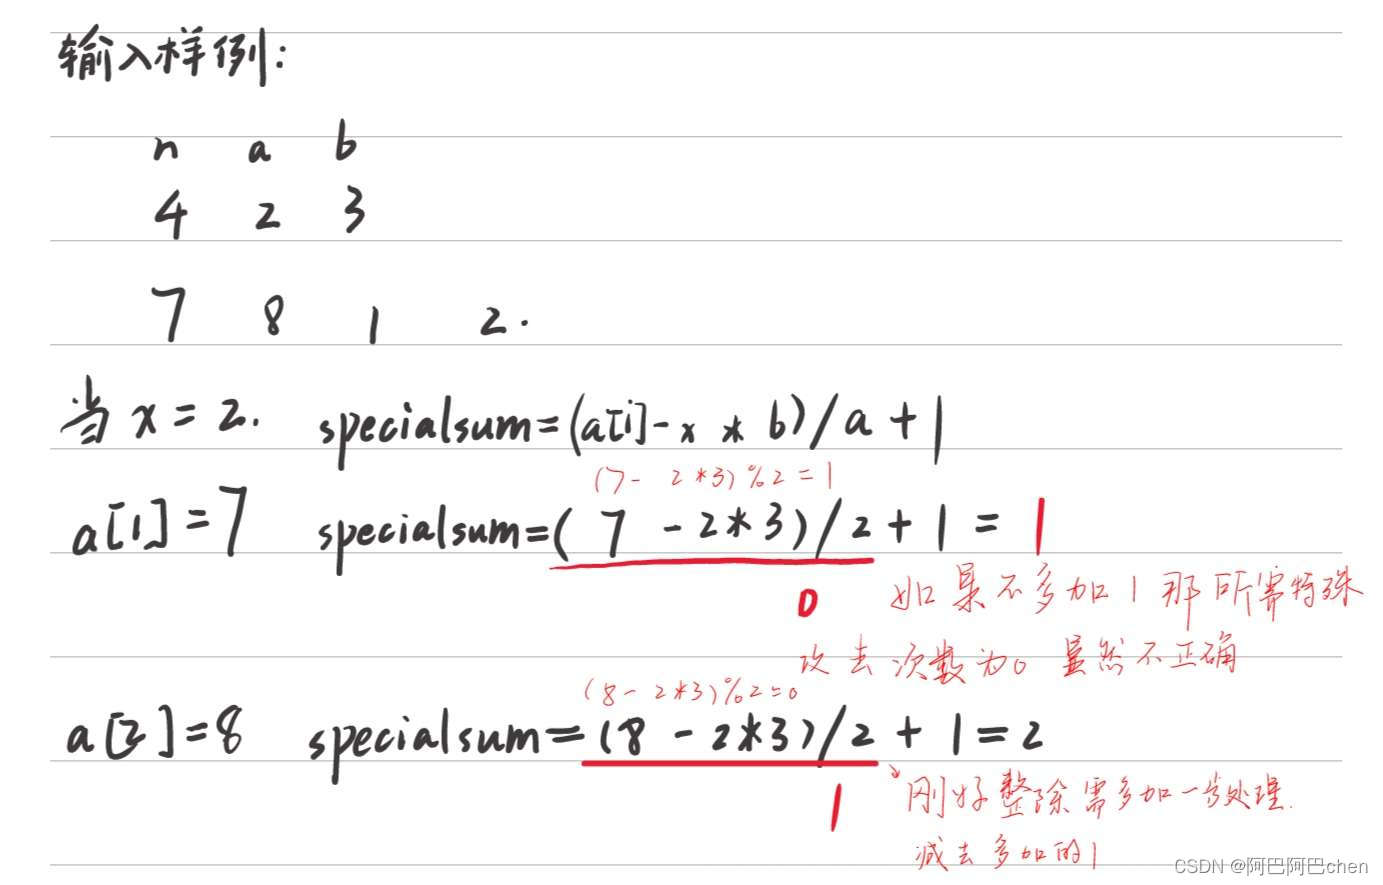 输入样例:
n a b
4 2 3
7 8 1 2.
当 x = 2. specialsum=(a[i]-x * b)/a + 1
(7- 2*3)%2=1
a[1]=7 specialsum=( 7 - 2*3)/2 + 1 = 1
0 如果不多加1那所需特殊
攻击次数为0 显然不正确
(8- 2*3)%2=0
a[2]=8 specialsum=(8 - 2*3)/2 + 1=2
1 刚好整除需多加一步处理.
减去多加的1
CSDN @阿巴阿巴chen